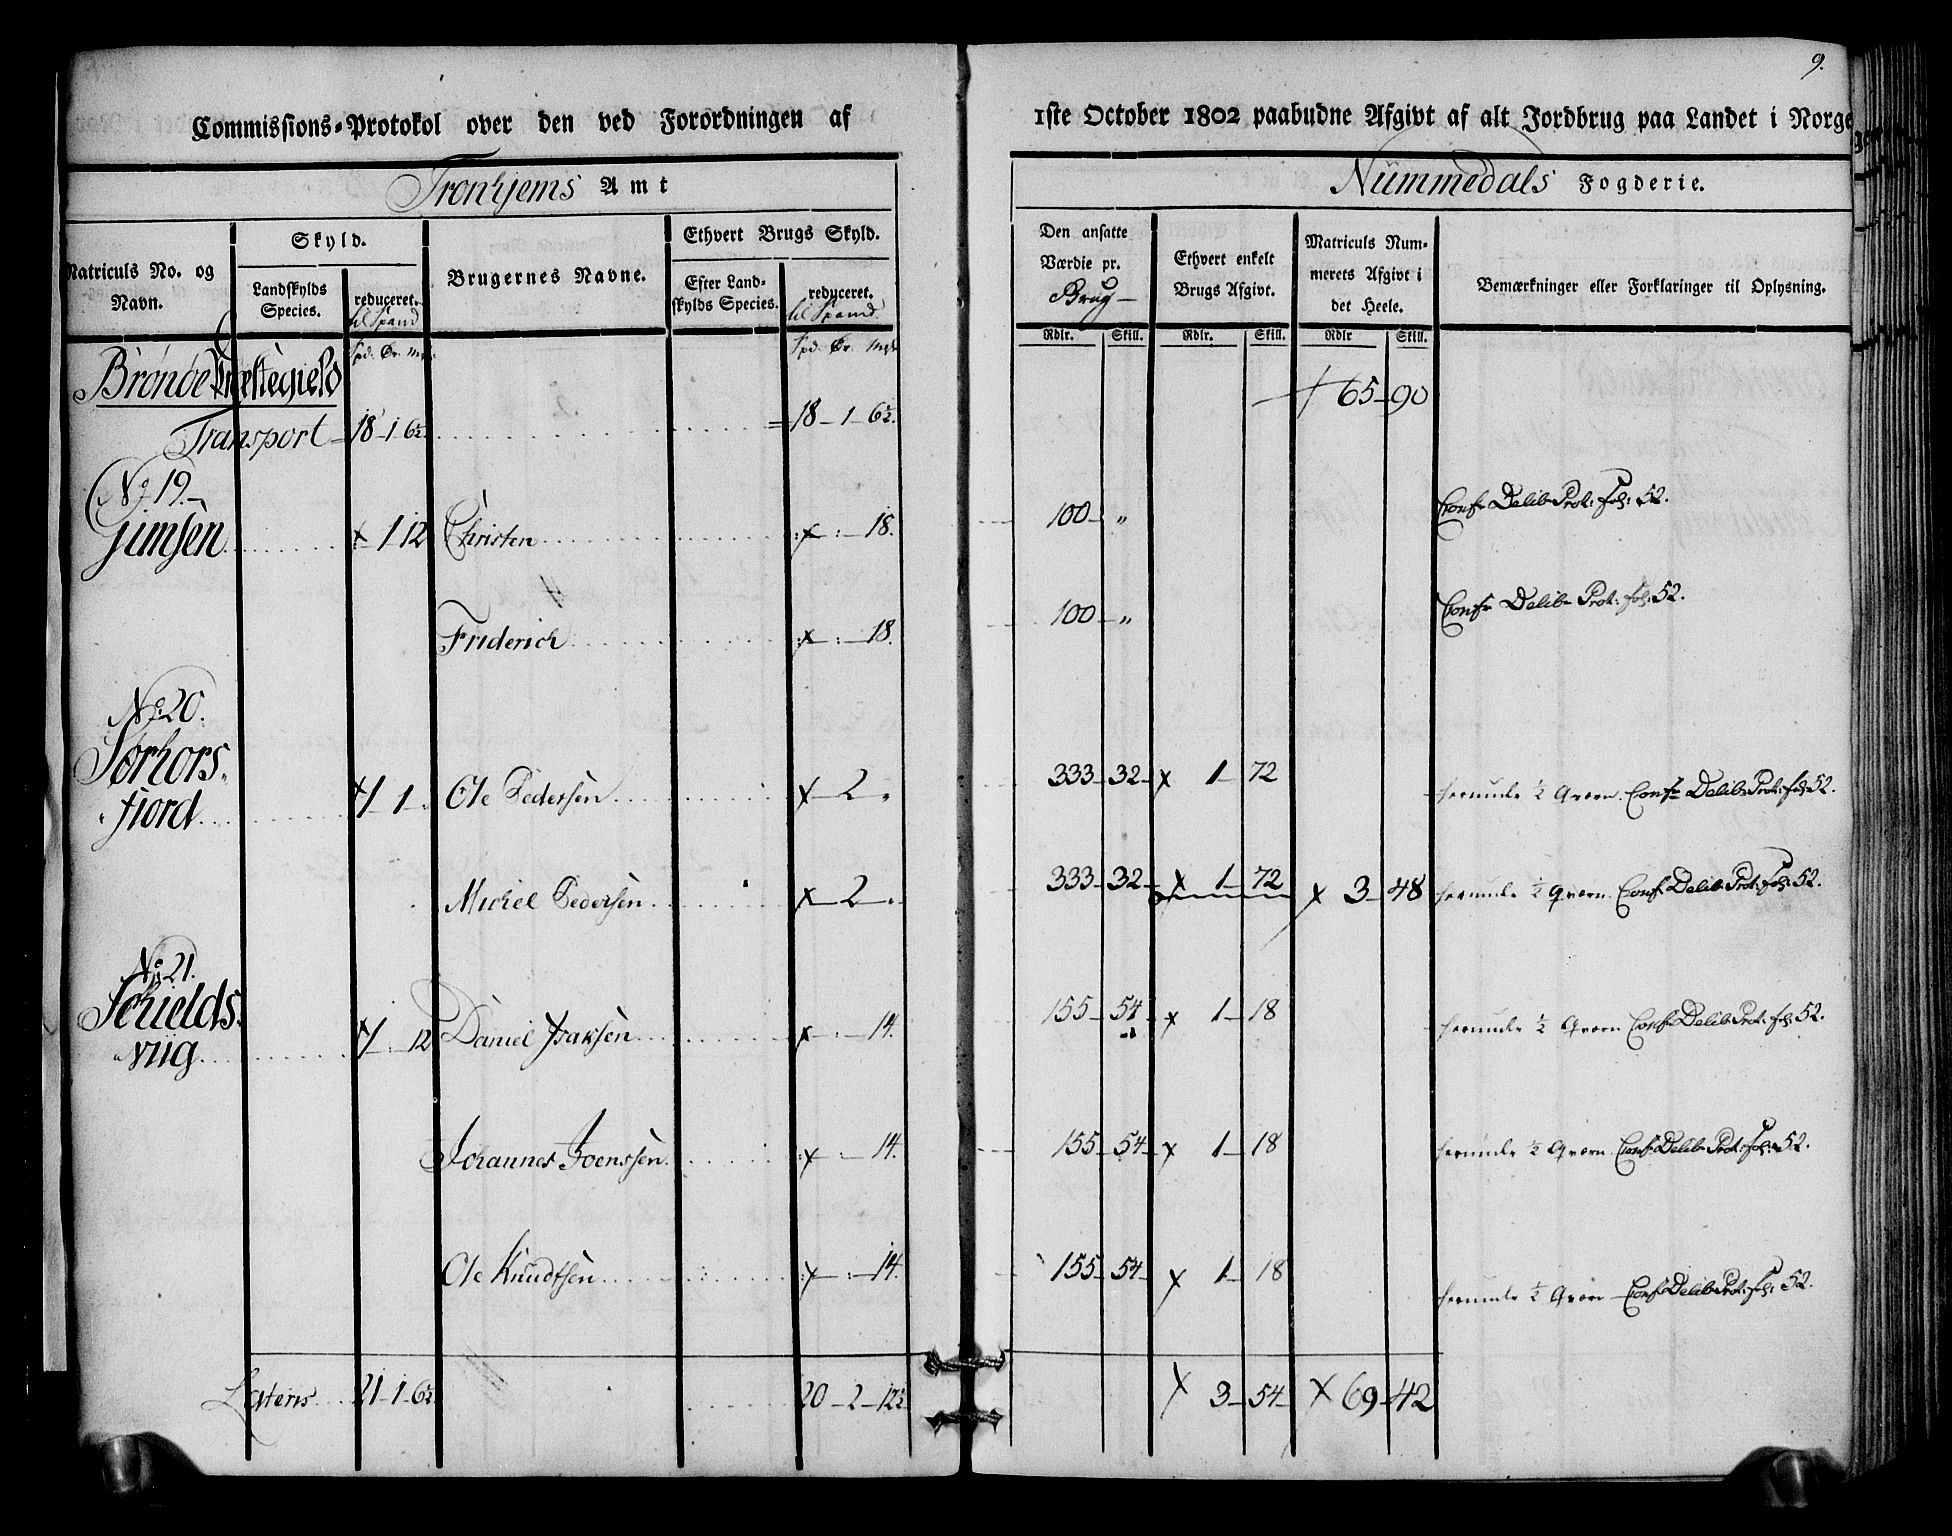 9.
Commissions-Protokol over den ved Forordningen af 1ste October 1802 paabudne Afgivt af alt Jordbrug paa Landet i Norge
Tronhjems Amt Nummedals Fogderie.
Matriculs No. og Navn.
Skyld.
Landskylds Species.
reduceret. til Spand
Brugernes Navne.
Ethvert Brugs Skyld.
Efter Landskylds Species.
reduceret. til Spand.
Den ansatte Værdie pr. Brug
Ethvert enkelt Brugs Afgivt.
Matriculs Nummerets Afgivt i det Heele.
Bemærkninger eller Forklaringer til Oplysning.
Spd. Ör. Mrk. Spd. Ör. Mrk Rdlr. Skill. Rdlr. Skill. Rdlr Skill.
Brönöe Præstegield
65 90
Transport 18 1 6½ 18 1 6½.
No 19.
Gimsen 1 12 Christen 18. 100 „ Confr Delib Prot: fol: 52.
Friderich 18. 100 „ Confr Delib Prot: fol: 52.
No 20.
Sørhors-
fiord 1 1 Ole Pedersen 2 333 32 1 72 herunder ½ Qværn. Confr Delib Prot: fol: 52.
Michel Pedersen 2 333 32 1 72 3 48 herunder ½ Qværn. Confr Delib Prot: fol: 52.
No 21.
Schields-
viig 1 12 Daniel Isaksen 14. 155 54 1 18 herunder ½ Qværn Confr Delib Prot: fol: 52.
Johannes Joenssen 14. 155 54 1 18 herunder ½ Qværn. Confr Delib Prot: fol: 52.
Ole Knudtsen 14. 155 54 1 18 herunder ½ Qværn Confr Delib Prot: fol: 52.
Lateris 21 1 6½ 20 2 12½ 3 54 69 42